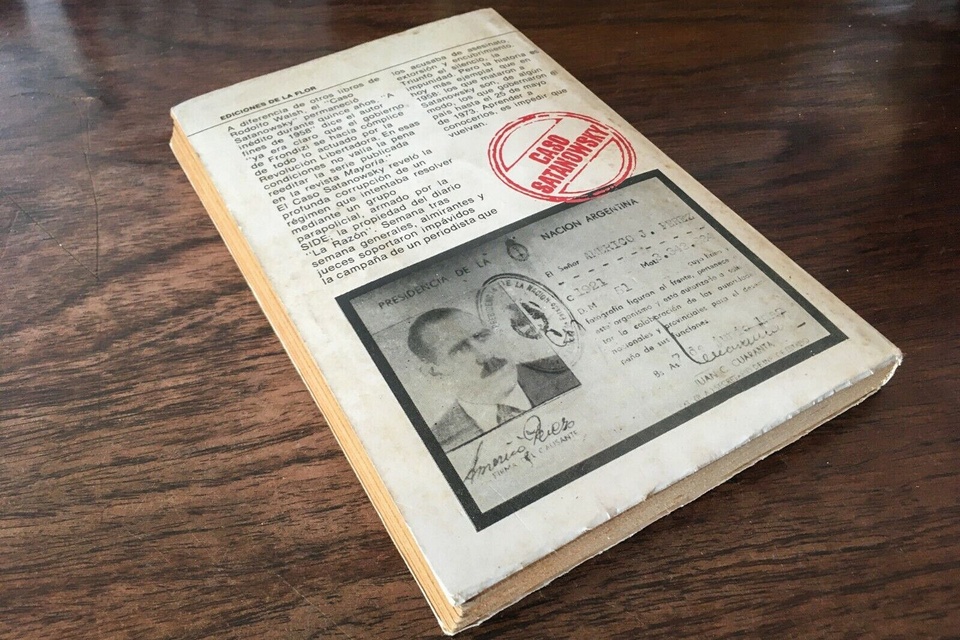 EDICIONES DE LA FLOR
A diferencia de otros libros de
Rodolfo Walsh, el "Caso
Satanowsky" permaneció
inédito durante quince años. "A
fines de 1958" dice el autor
"ya era claro que el gobierno
de Frondizi se hacía cómplice
de todo lo actuado por la
Revolución Libertadora. En esas
condiciones no valía la pena
reeditar la serie publicada
en la revista Mayoría".
El Caso Satanowsky reveló la
profunda corrupción de un
régimen que intentaba resolver
mediante un grupo
parapolicial, armado por la
SIDE, la propiedad del diario
"La Razón". Semana tras
semana generales, almirantes y
jueces soportaron impávidos
la campaña de un periodista que
los acusaba de asesinato,
extorsión y encubrimiento.
Triunfó el silencio, la
impunidad. Pero la historia es
hoy más ejemplar que en
1958: los que mataron a
Satanowsky son, de algún
modo, los que gobernaron el
país hasta el 25 de mayo
de 1973. Aprender a
conocerlos, es impedir que
vuelvan.
CASO
SATANOWSKY
PRESIDENCIA DE LA NACION ARGENTINA
El Señor AMERICO J. PEREZ
C 1921
D. M. 51 Mat.
cuya
fotografía figuran al frente, pertenece
a este organismo y está autorizado a
la colaboración de las autoridades
nacionales y provinciales para el
de sus funciones.
Bs. As.
JUAN C. CUARANTA
Américo Perez
FIRMA DEL CAUSANTE